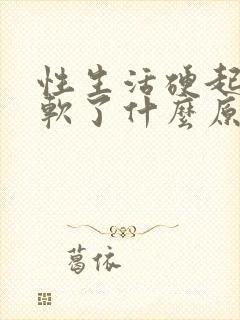 性生活硬起
軟了什麼原
葛依